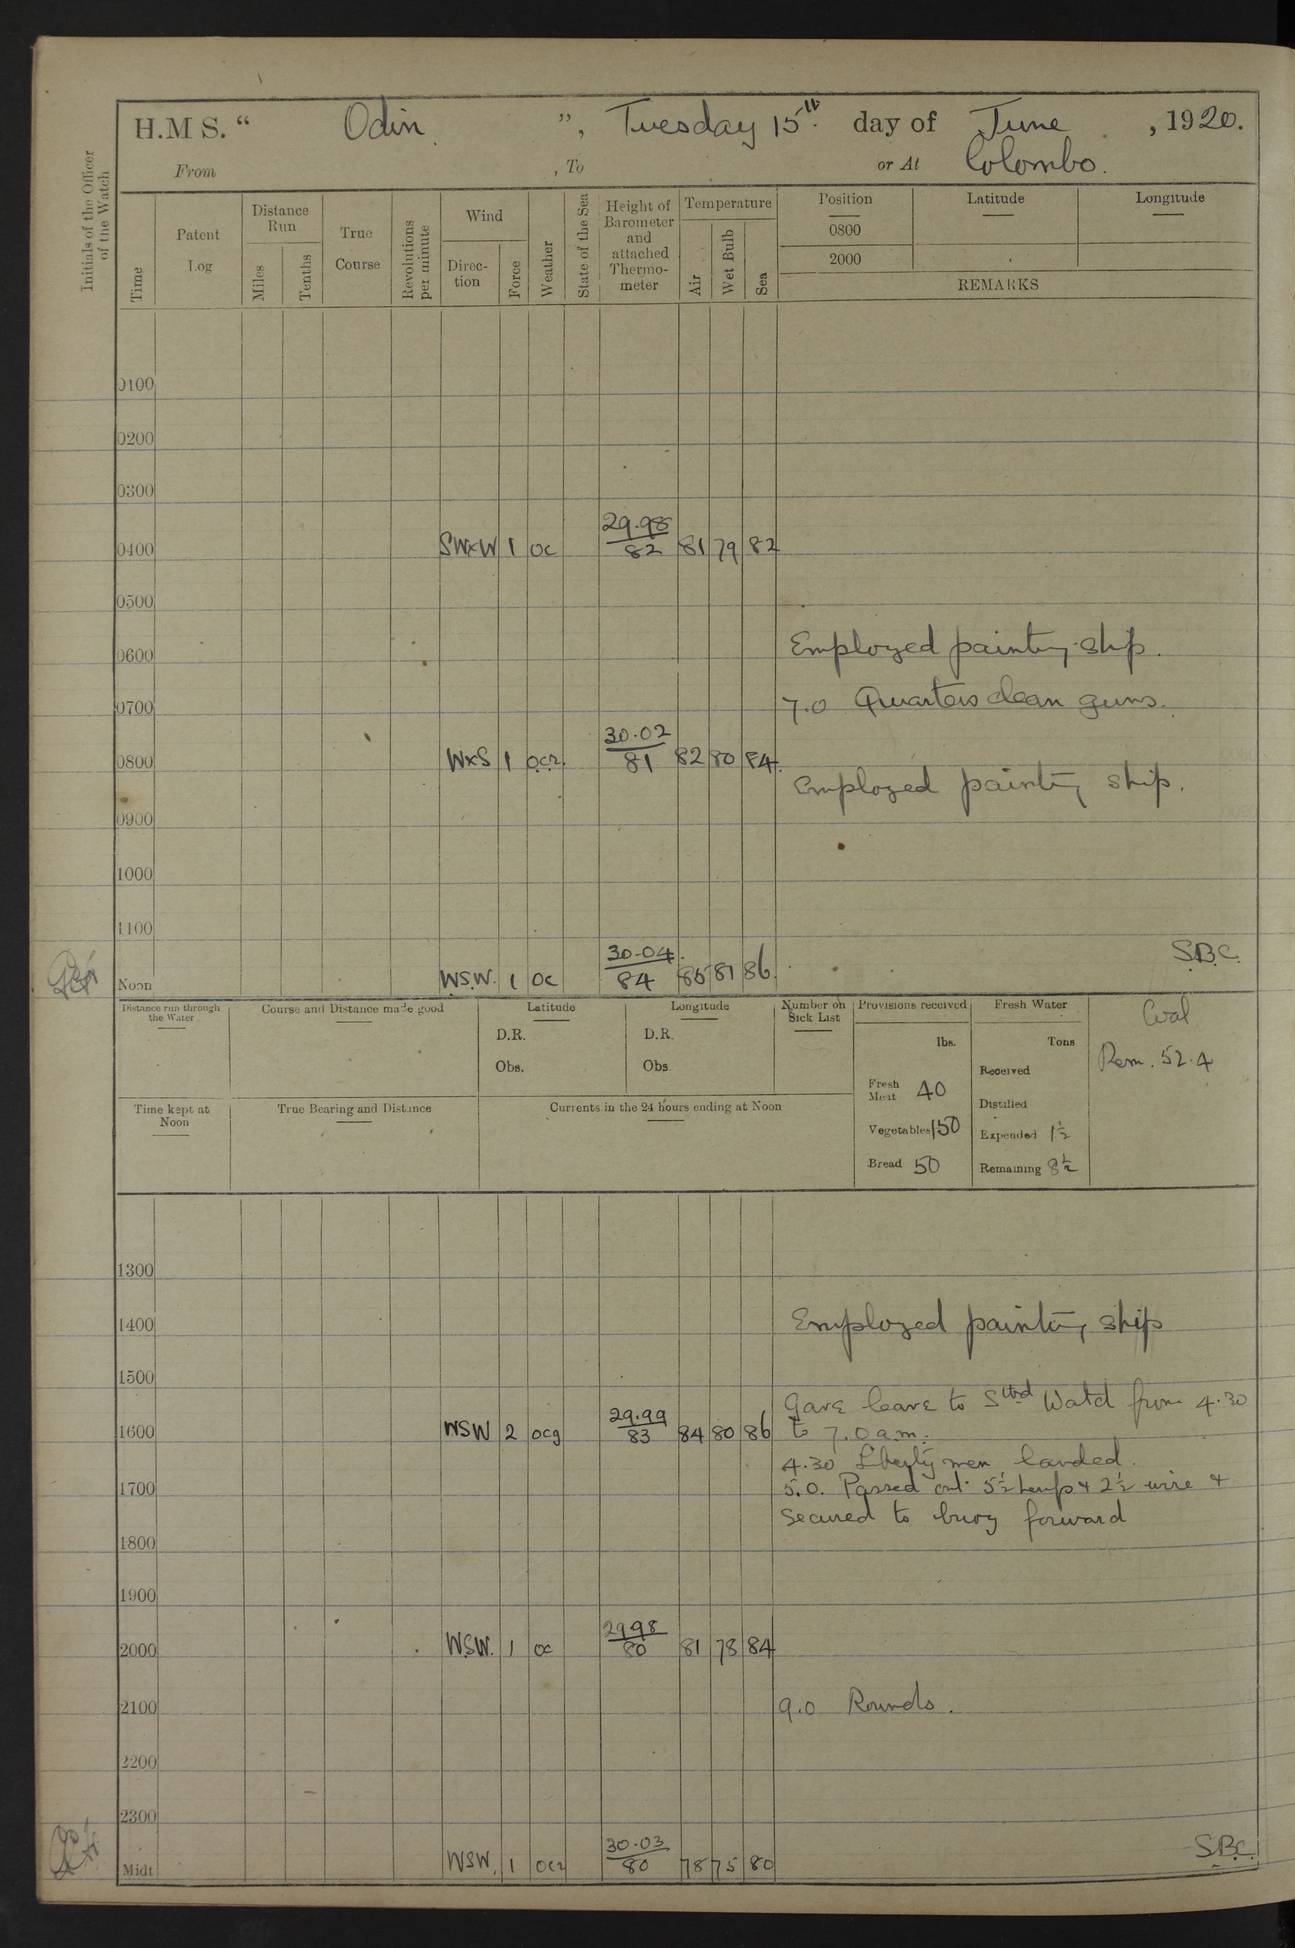 H.M S. " Odin ", Tuesday 15th day of June , 1920.
From , To or At Colombo.
Initials of the Officer of the Watch
Time
Patent Log
Distance Run
Miles
Tenths
True Course
Revolutions per minute
Wind
Direc-tion
Force
Weather
State of the Sea
Height of Barometer and attached Thermo-meter
Temperature
Air
Wet Bulb
Sea
Position
Latitude
Longitude
0800
2000
REMARKS
0100
0200
0300
0400 SWxW 1 oc 29.98/82 81 79 82
0500
0600 Employed painting ship.
0700 7.0 Quarters clean guns.
0800 WxS 1 ocr. 30.02/81 82 80 84.
Employed painting ship.
0900
1000
1100
S.B.C.
Noon WSW. 1 oc 30.04/84 85 81 86.
Distance run through the Water
Course and Distance made good
Latitude
D.R.
Obs.
Longitude
D.R.
Obs.
Number on Sick List
Provisions received
lbs.
Fresh Meat 40
Vegetables 150
Bread 50
Fresh Water
Tons
Received
Distilled
Expended 1½
Remaining 8½
Coal
Rem. 52.4
Time kept at Noon
True Bearing and Distance
Currents in the 24 hours ending at Noon
1300
1400 Employed painting ship
1500
Gave leave to Stbd Watch from 4.30
1600 WSW 2 ocg 29.99/83 84 80 86 to 7.0 a.m.
4.30 Liberty men landed.
1700 5.0. Passed out 5½ hemp & 2½ wire &
secured to buoy forward
1800
1900
2000 WSW. 1 oc 29.98/80 81 78 84
2100 9.0 Rounds.
2200
2300
S.B.C.
Midt WSW. 1 ocr 30.03/80 78 75 80